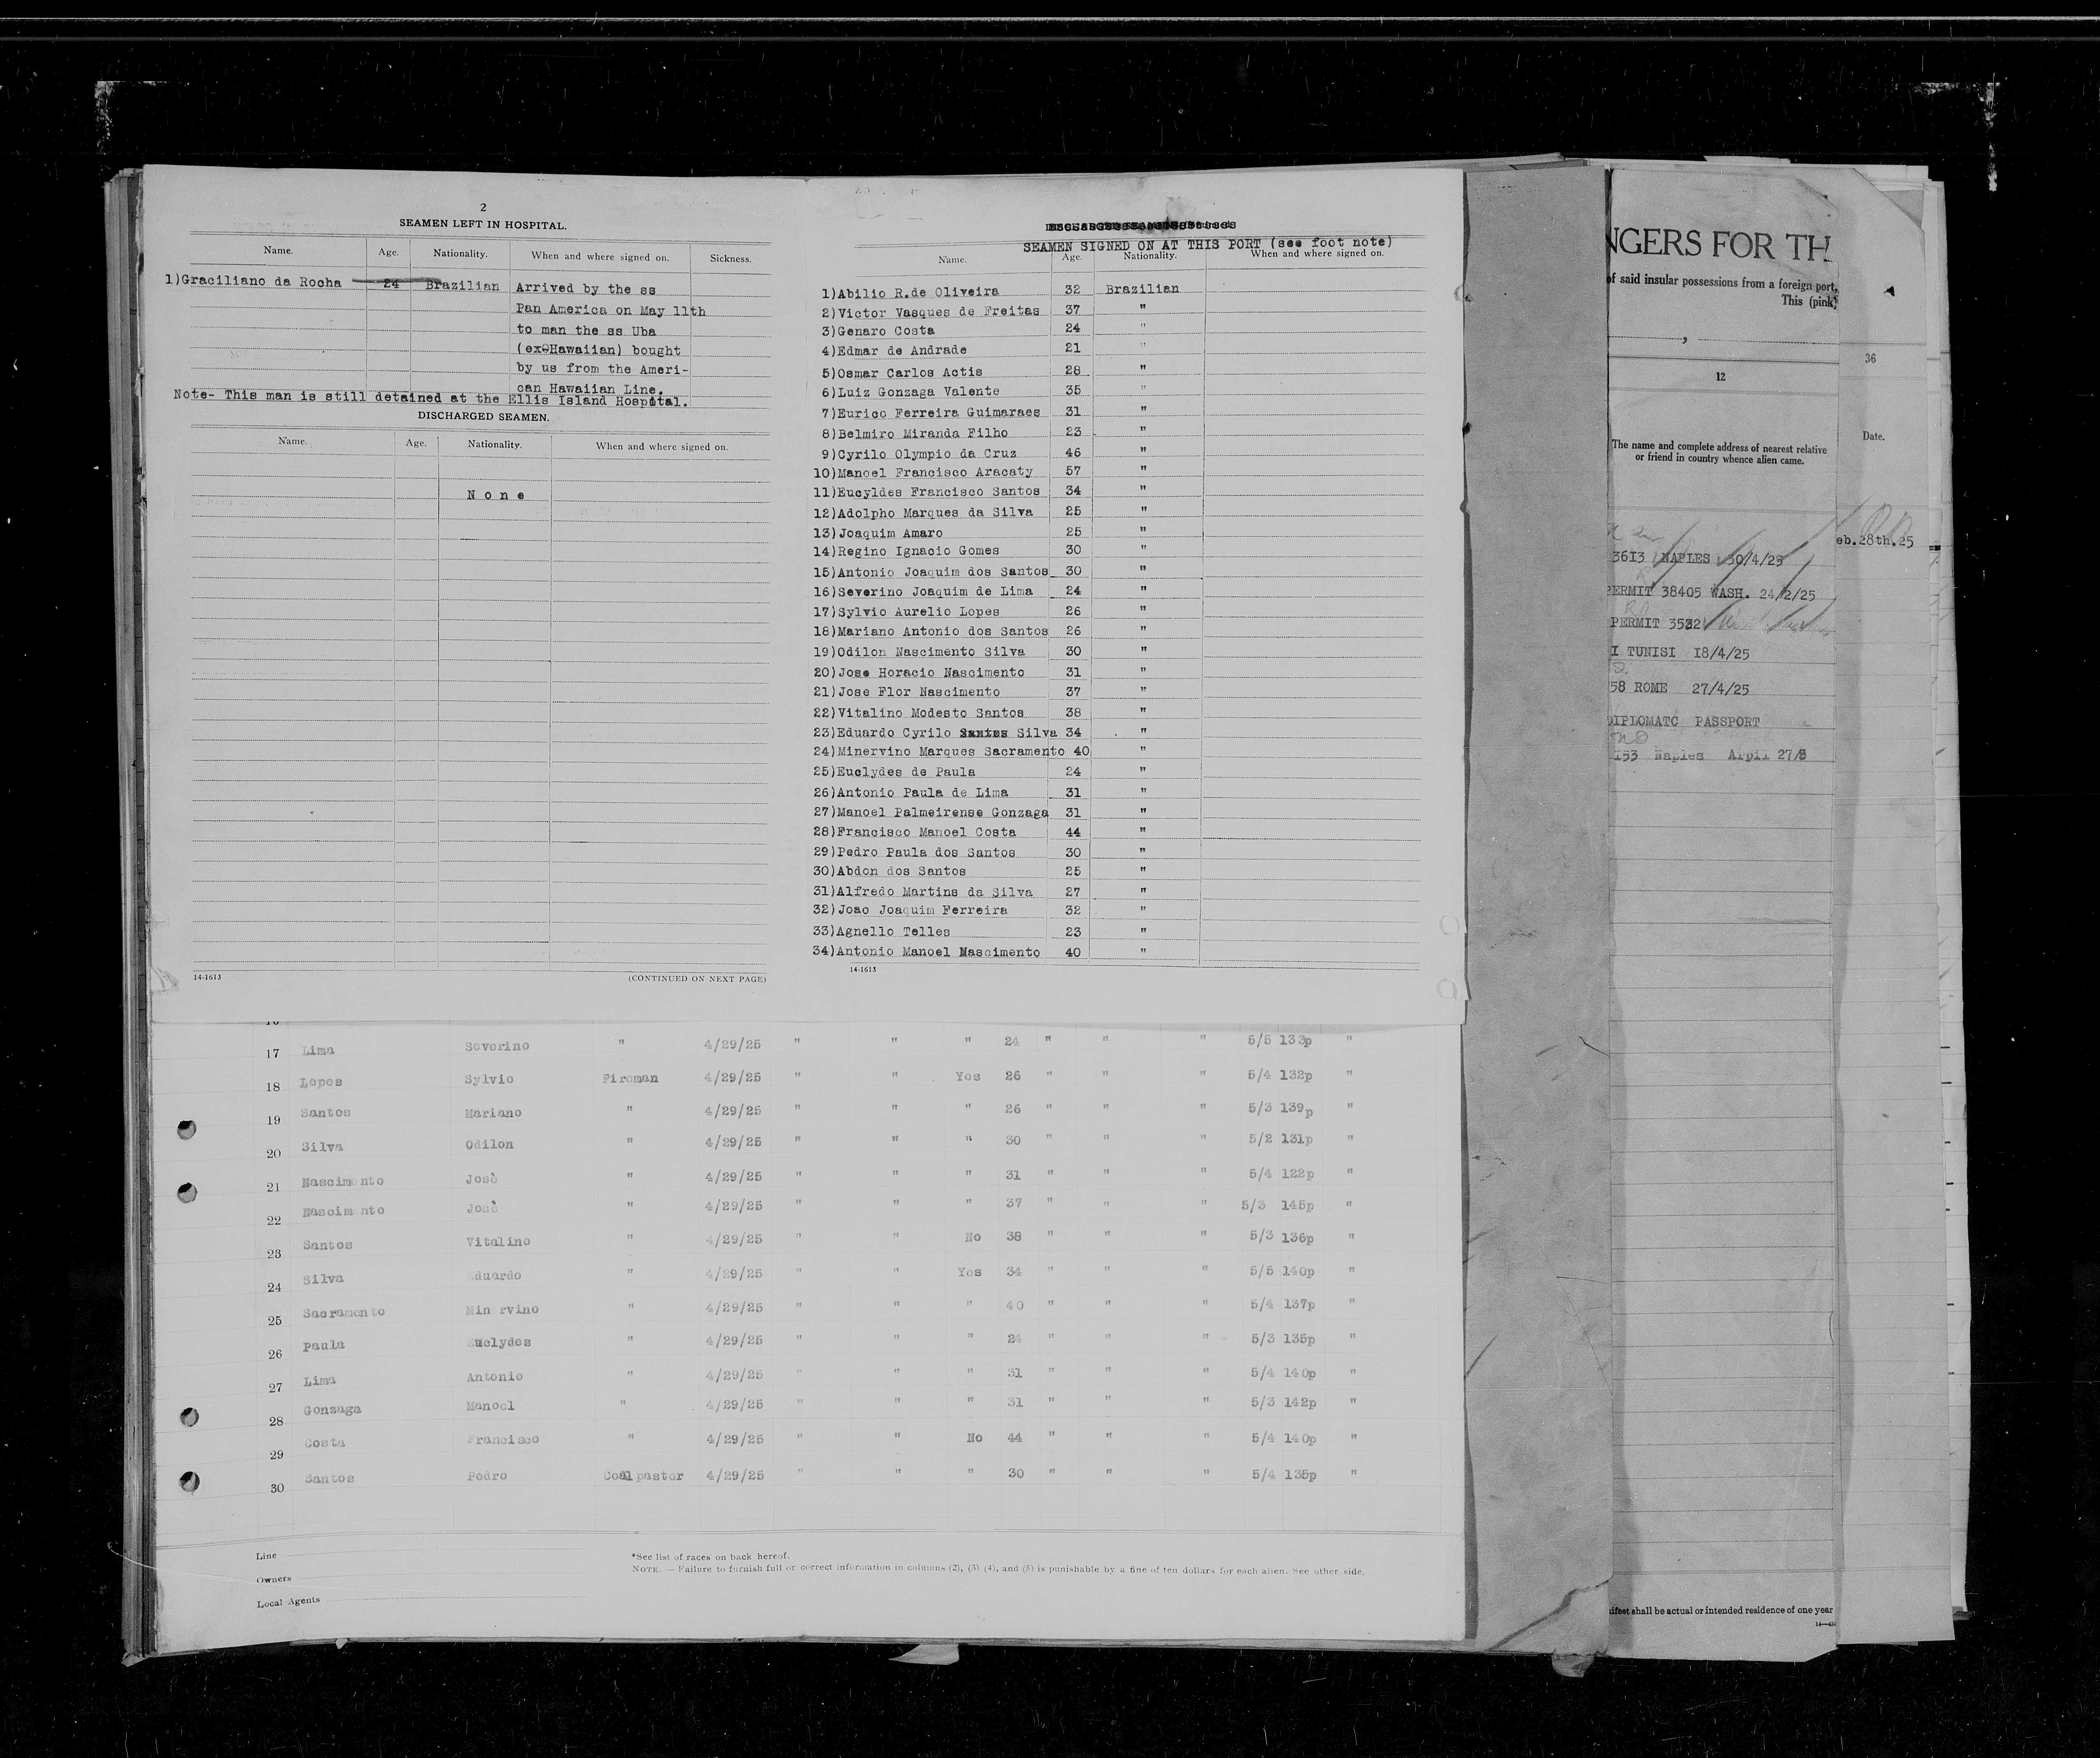 2
SEAMEN LEFT IN HOSPITAL.
Name. Age. Nationality. When and where signed on. Sickness.
1)Graciliano da Rocha 24 Brazilian Arrived by the ss
Pan America on May 11th
to man the ss Uba
(ex-Hawaiian) bought
by us from the Ameri-
can Hawaiian Line.
Note- This man is still detained at the Ellis Island Hospital.
DISCHARGED SEAMEN.
Name. Age. Nationality. When and where signed on.
None
14-1613 (CONTINUED ON NEXT PAGE)
SEAMEN SIGNED ON AT THIS PORT (see foot note)
Name. Age. Nationality. When and where signed on.
1)Abilio R.de Oliveira 32 Brazilian
2)Victor Vasques de Freitas 37 "
3)Genaro Costa 24 "
4)Edmar de Andrade 21 "
5)Osmar Carlos Actis 28 "
6)Luiz Gonzaga Valente 35 "
7)Eurico Ferreira Guimaraes 31 "
8)Belmiro Miranda Filho 23 "
9)Cyrilo Olympio da Cruz 46 "
10)Manoel Francisco Aracaty 57 "
11)Eucyldes Francisco Santos 34 "
12)Adolpho Marques da Silva 25 "
13)Joaquim Amaro 25 "
14)Regino Ignacio Gomes 30 "
15)Antonio Joaquim dos Santos 30 "
16)Severino Joaquim de Lima 24 "
17)Sylvio Aurelio Lopes 26 "
18)Mariano Antonio dos Santos 26 "
19)Odilon Nascimento Silva 30 "
20)Jose Horacio Nascimento 31 "
21)Jose Flor Nascimento 37 "
22)Vitalino Modesto Santos 38 "
23)Eduardo Cyrilo Santos Silva 34 "
24)Minervino Marques Sacramento 40 "
25)Euclydes de Paula 24 "
26)Antonio Paula de Lima 31 "
27)Manoel Palmeirense Gonzaga 31 "
28)Francisco Manoel Costa 44 "
29)Pedro Paula dos Santos 30 "
30)Abdon dos Santos 25 "
31)Alfredo Martins da Silva 27 "
32)Joao Joaquim Ferreira 32 "
33)Agnello Telles 23 "
34)Antonio Manoel Nascimento 40 "
14-1613
17 Lima Severino " 4/29/25 " " " 24 " " " 5/5 133p "
18 Lopes Sylvio Fireman 4/29/25 " " Yes 26 " " " 5/4 132p "
19 Santos Mariano " 4/29/25 " " " 26 " " " 5/3 139p "
20 Silva Odilon " 4/29/25 " " " 30 " " " 5/2 131p "
21 Nascimento Josè " 4/29/25 " " " 31 " " 5/4 122p "
22 Nascimento Josè " 4/29/25 " " " 37 " " " 5/3 145p "
23 Santos Vitalino " 4/29/25 " " No 38 " " " 5/3 136p "
24 Silva Eduardo " 4/29/25 " " Yes 34 " " " 5/5 140p "
25 Sacramento Min rvino " 4/29/25 " " " 40 " " " 5/4 137p "
26 Paula Euclydes " 4/29/25 " " " 24 " " " 5/3 135p "
27 Lima Antonio " 4/29/25 " " " 31 " " " 5/4 140p "
28 Gonzaga Manoel " 4/29/25 " " " 31 " " " 5/3 142p "
29 Costa Francisco " 4/29/25 " " No 44 " " " 5/4 140p "
30 Santos Pedro Coalpaster 4/29/25 " " " 30 " " " 5/4 135p "
Line
Owners
Local Agents
*See list of races on back hereof.
NOTE. — Failure to furnish full or correct information in columns (2), (3) (4), and (5) is punishable by a fine of ten dollars for each alien. See other side.
NGERS FOR TH
of said insular possessions from a foreign port,
This (pink)
12
The name and complete address of nearest relative
or friend in country whence alien came.
3613 NAPLES 30/4/25
PERMIT 38405 WASH. 24/2/25
PERMIT 3532
I TUNISI 18/4/25
58 ROME 27/4/25
DIPLOMATC PASSPORT
153 Naples Arpil 27/8
ifest shall be actual or intended residence of one year
36
Date.
eb.28th.25